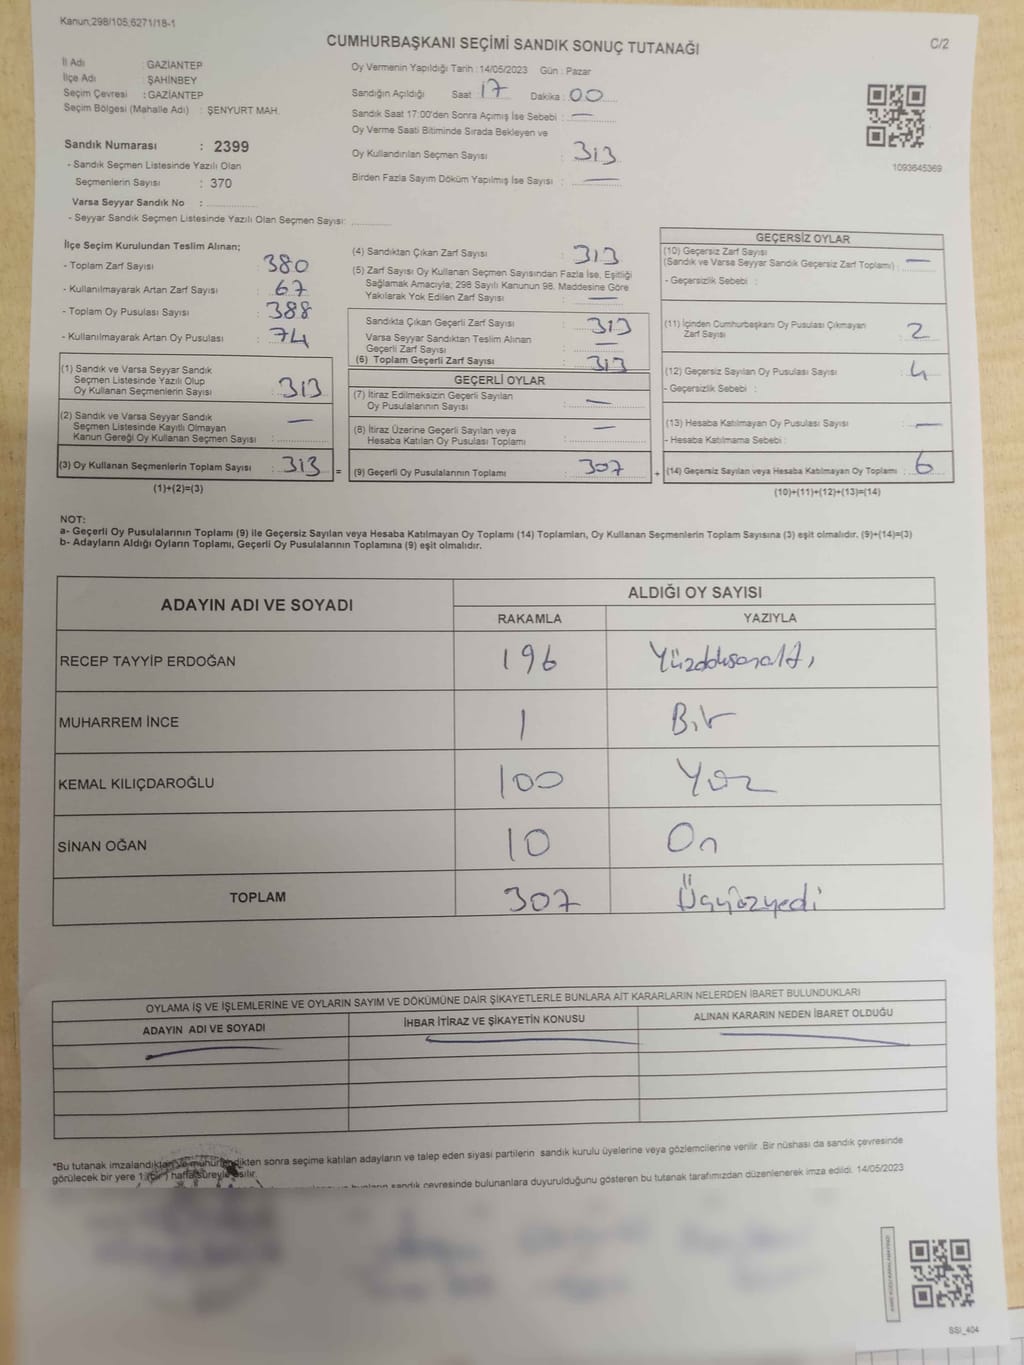 Kanun,298/105,6271/18-1
CUMHURBAŞKANI SEÇİMİ SANDIK SONUÇ TUTANAĞI
C/2
İl Adı : GAZİANTEP
İlçe Adı : ŞAHİNBEY
Seçim Çevresi : GAZİANTEP
Seçim Bölgesi (Mahalle Adı) : ŞENYURT MAH.
Sandık Numarası : 2399
- Sandık Seçmen Listesinde Yazılı Olan
Seçmenlerin Sayısı : 370
Varsa Seyyar Sandık No :
- Seyyar Sandık Seçmen Listesinde Yazılı Olan Seçmen Sayısı:
Oy Vermenin Yapıldığı Tarih : 14/05/2023 Gün : Pazar
Sandığın Açıldığı Saat 17 Dakika : 00
Sandık Saat 17:00'den Sonra Açımış İse Sebebi : —
Oy Verme Saati Bitiminde Sırada Bekleyen ve
Oy Kullandırılan Seçmen Sayısı : 313
Birden Fazla Sayım Döküm Yapılmış İse Sayısı : —
1093645369
İlçe Seçim Kurulundan Teslim Alınan;
- Toplam Zarf Sayısı : 380
- Kullanılmayarak Artan Zarf Sayısı : 67
- Toplam Oy Pusulası Sayısı : 388
- Kullanılmayarak Artan Oy Pusulası : 74
(1) Sandık ve Varsa Seyyar Sandık
Seçmen Listesinde Yazılı Olup
Oy Kullanan Seçmenlerin Sayısı : 313
(2) Sandık ve Varsa Seyyar Sandık
Seçmen Listesinde Kayıtlı Olmayan
Kanun Gereği Oy Kullanan Seçmen Sayısı : —
(3) Oy Kullanan Seçmenlerin Toplam Sayısı : 313 =
(1)+(2)=(3)
(4) Sandıktan Çıkan Zarf Sayısı : 313
(5) Zarf Sayısı Oy Kullanan Seçmen Sayısından Fazla İse, Eşitliği
Sağlamak Amacıyla, 298 Sayılı Kanunun 98. Maddesine Göre
Yakılarak Yok Edilen Zarf Sayısı : —
Sandıkta Çıkan Geçerli Zarf Sayısı : 313
Varsa Seyyar Sandıktan Teslim Alınan
Geçerli Zarf Sayısı : —
(6) Toplam Geçerli Zarf Sayısı : 313
GEÇERLİ OYLAR
(7) İtiraz Edilmeksizin Geçerli Sayılan
Oy Pusulalarının Sayısı : —
(8) İtiraz Üzerine Geçerli Sayılan veya
Hesaba Katılan Oy Pusulası Toplamı : —
(9) Geçerli Oy Pusulalarının Toplamı : 307 +
GEÇERSİZ OYLAR
(10) Geçersiz Zarf Sayısı
(Sandık ve Varsa Seyyar Sandık Geçersiz Zarf Toplamı) : —
- Geçersizlik Sebebi :
(11) İçinden Cumhurbaşkanı Oy Pusulası Çıkmayan
Zarf Sayısı : 2
(12) Geçersiz Sayılan Oy Pusulası Sayısı : 4
- Geçersizlik Sebebi :
(13) Hesaba Katılmayan Oy Pusulası Sayısı : —
- Hesaba Katılmama Sebebi :
(14) Geçersiz Sayılan veya Hesaba Katılmayan Oy Toplamı : 6
(10)+(11)+(12)+(13)=(14)
NOT:
a- Geçerli Oy Pusulalarının Toplamı (9) ile Geçersiz Sayılan veya Hesaba Katılmayan Oy Toplamı (14) Toplamları, Oy Kullanan Seçmenlerin Toplam Sayısına (3) eşit olmalıdır. (9)+(14)=(3)
b- Adayların Aldığı Oyların Toplamı, Geçerli Oy Pusulalarının Toplamına (9) eşit olmalıdır.
ADAYIN ADI VE SOYADI ALDIĞI OY SAYISI
RAKAMLA YAZIYLA
RECEP TAYYİP ERDOĞAN 196 Yüzdoksanaltı
MUHARREM İNCE 1 Bir
KEMAL KILIÇDAROĞLU 100 Yüz
SİNAN OĞAN 10 On
TOPLAM 307 Üçyüzyedi
OYLAMA İŞ VE İŞLEMLERİNE VE OYLARIN SAYIM VE DÖKÜMÜNE DAİR ŞİKAYETLERLE BUNLARA AİT KARARLARIN NELERDEN İBARET BULUNDUKLARI
ADAYIN ADI VE SOYADI İHBAR İTİRAZ VE ŞİKAYETİN KONUSU ALINAN KARARIN NEDEN İBARET OLDUĞU
*Bu tutanak imzalandıktan ve mühürlendikten sonra seçime katılan adayların ve talep eden siyasi partilerin sandık kurulu üyelerine veya gözlemcilerine verilir .Bir nüshası da sandık çevresinde
görülecek bir yere 1 (bir ) hafta süreyle asılır.
bunların sandık çevresinde bulunanlara duyurulduğunu gösteren bu tutanak tarafımızdan düzenlenerek imza edildi. 14/05/2023
SSI_404